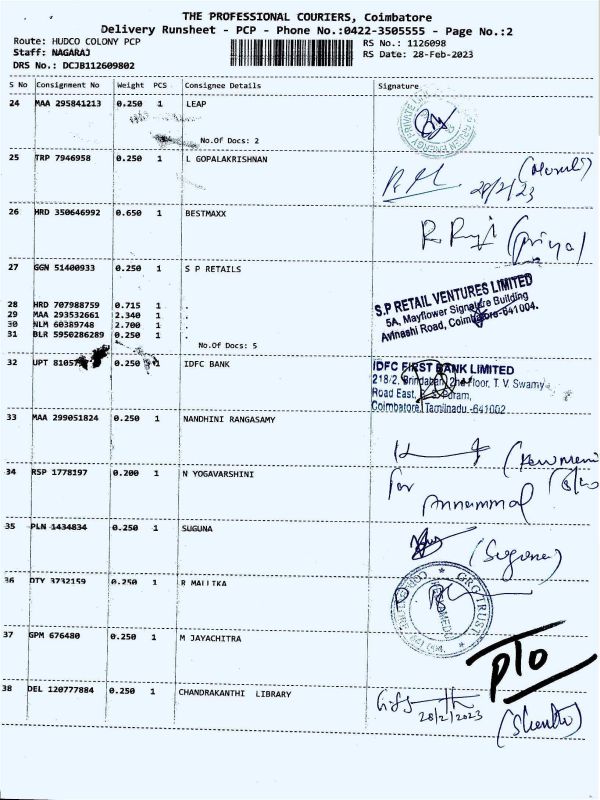 THE PROFESSIONAL COURIERS, Coimbatore
Delivery Runsheet - PCP - Phone No.:0422-3505555 - Page No.:2
Route: HUDCO COLONY PCP RS No.: 1126098
Staff: NAGARAJ RS Date: 28-Feb-2023
DRS No.: DCJB112609802
S No Consignment No Weight PCS Consignee Details Signature
24 MAA 295841213 0.250 1 LEAP
No.Of Docs: 2
25 TRP 7946958 0.250 1 L GOPALAKRISHNAN
(Murali)
28/2/23
26 HRD 350646992 0.650 1 BESTMAXX
(Priya)
27 GGN 51400933 0.250 1 S P RETAILS
S.P RETAIL VENTURES LIMITED
5A, Mayflower Signature Building
Avinashi Road, Coimbatore-641004.
28 HRD 707988759 0.715 1 .
29 MAA 293532661 2.340 1 .
30 NLM 60389748 2.700 1 .
31 BLR 5950286289 0.250 1 .
No.Of Docs: 5
32 UPT 0.250 1 IDFC BANK
IDFC FIRST BANK LIMITED
218/2, Brindaban, 2nd Floor, T. V. Swamy
Road East, R. S. Puram,
Coimbatore, Tamilnadu.-641002
33 MAA 299051824 0.250 1 NANDHINI RANGASAMY
34 RSP 1778197 0.200 1 N YOGAVARSHINI
for
Annammal
35 PLN 1434834 0.250 1 SUGUNA
(Suguna)
36 OTY 3732159 0.250 1 R MALLIKA
GRG TRUST
37 GPM 676480 0.250 1 M JAYACHITRA
PTO
38 DEL 120777884 0.250 1 CHANDRAKANTHI LIBRARY
28/2/2023